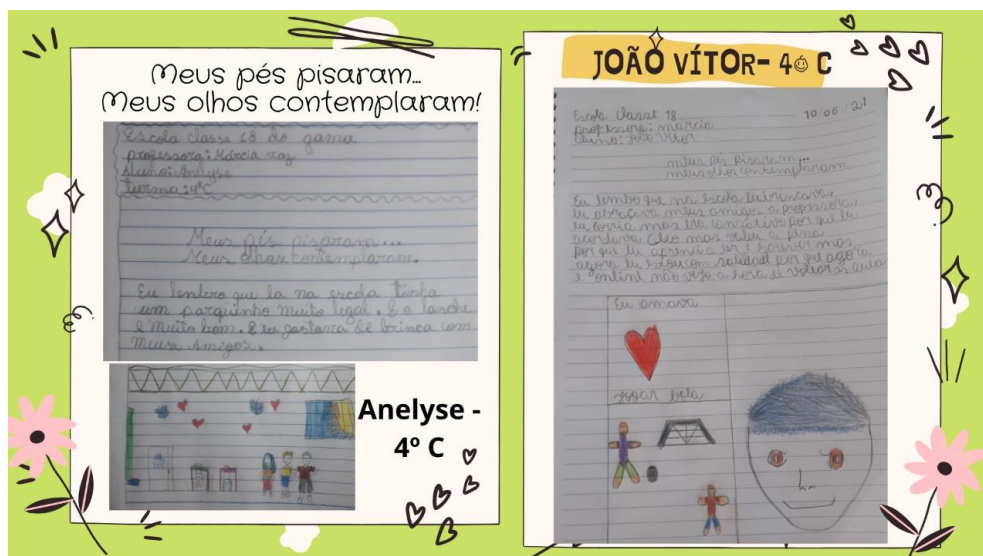 Meus pés pisaram...
Meus olhos contemplaram!
Escola Classe 18 do gama
professora: Márcia vaz
Aluno: Anelyse
turma: 4ºC
Meus pés pisaram...
Meus olhos contemplaram.
Eu lembro que la na escola tinha
um parquinho muito legal. E o lanche
e Muito bom. E eu gostava de brinca com
Meus Amigos.
Anelyse -
4º C
JOÃO VÍTOR- 4º C
Escola Classe 18
10/06/21
professora: márcia
aluno: João Vitor
meus pés pisaram...
meus olhos contemplaram
Eu lembo que na escola eu brincava,
eu abraçava meus amigos a professora,
eu corria mas era cansativo por que eu
acordava cedo mas valeu a pena
por que eu aprendia ler e escrever mas
agora eu estou com saudade por que agora
e online não vejo a hora de voltar as aula
Eu amava
jogar bola